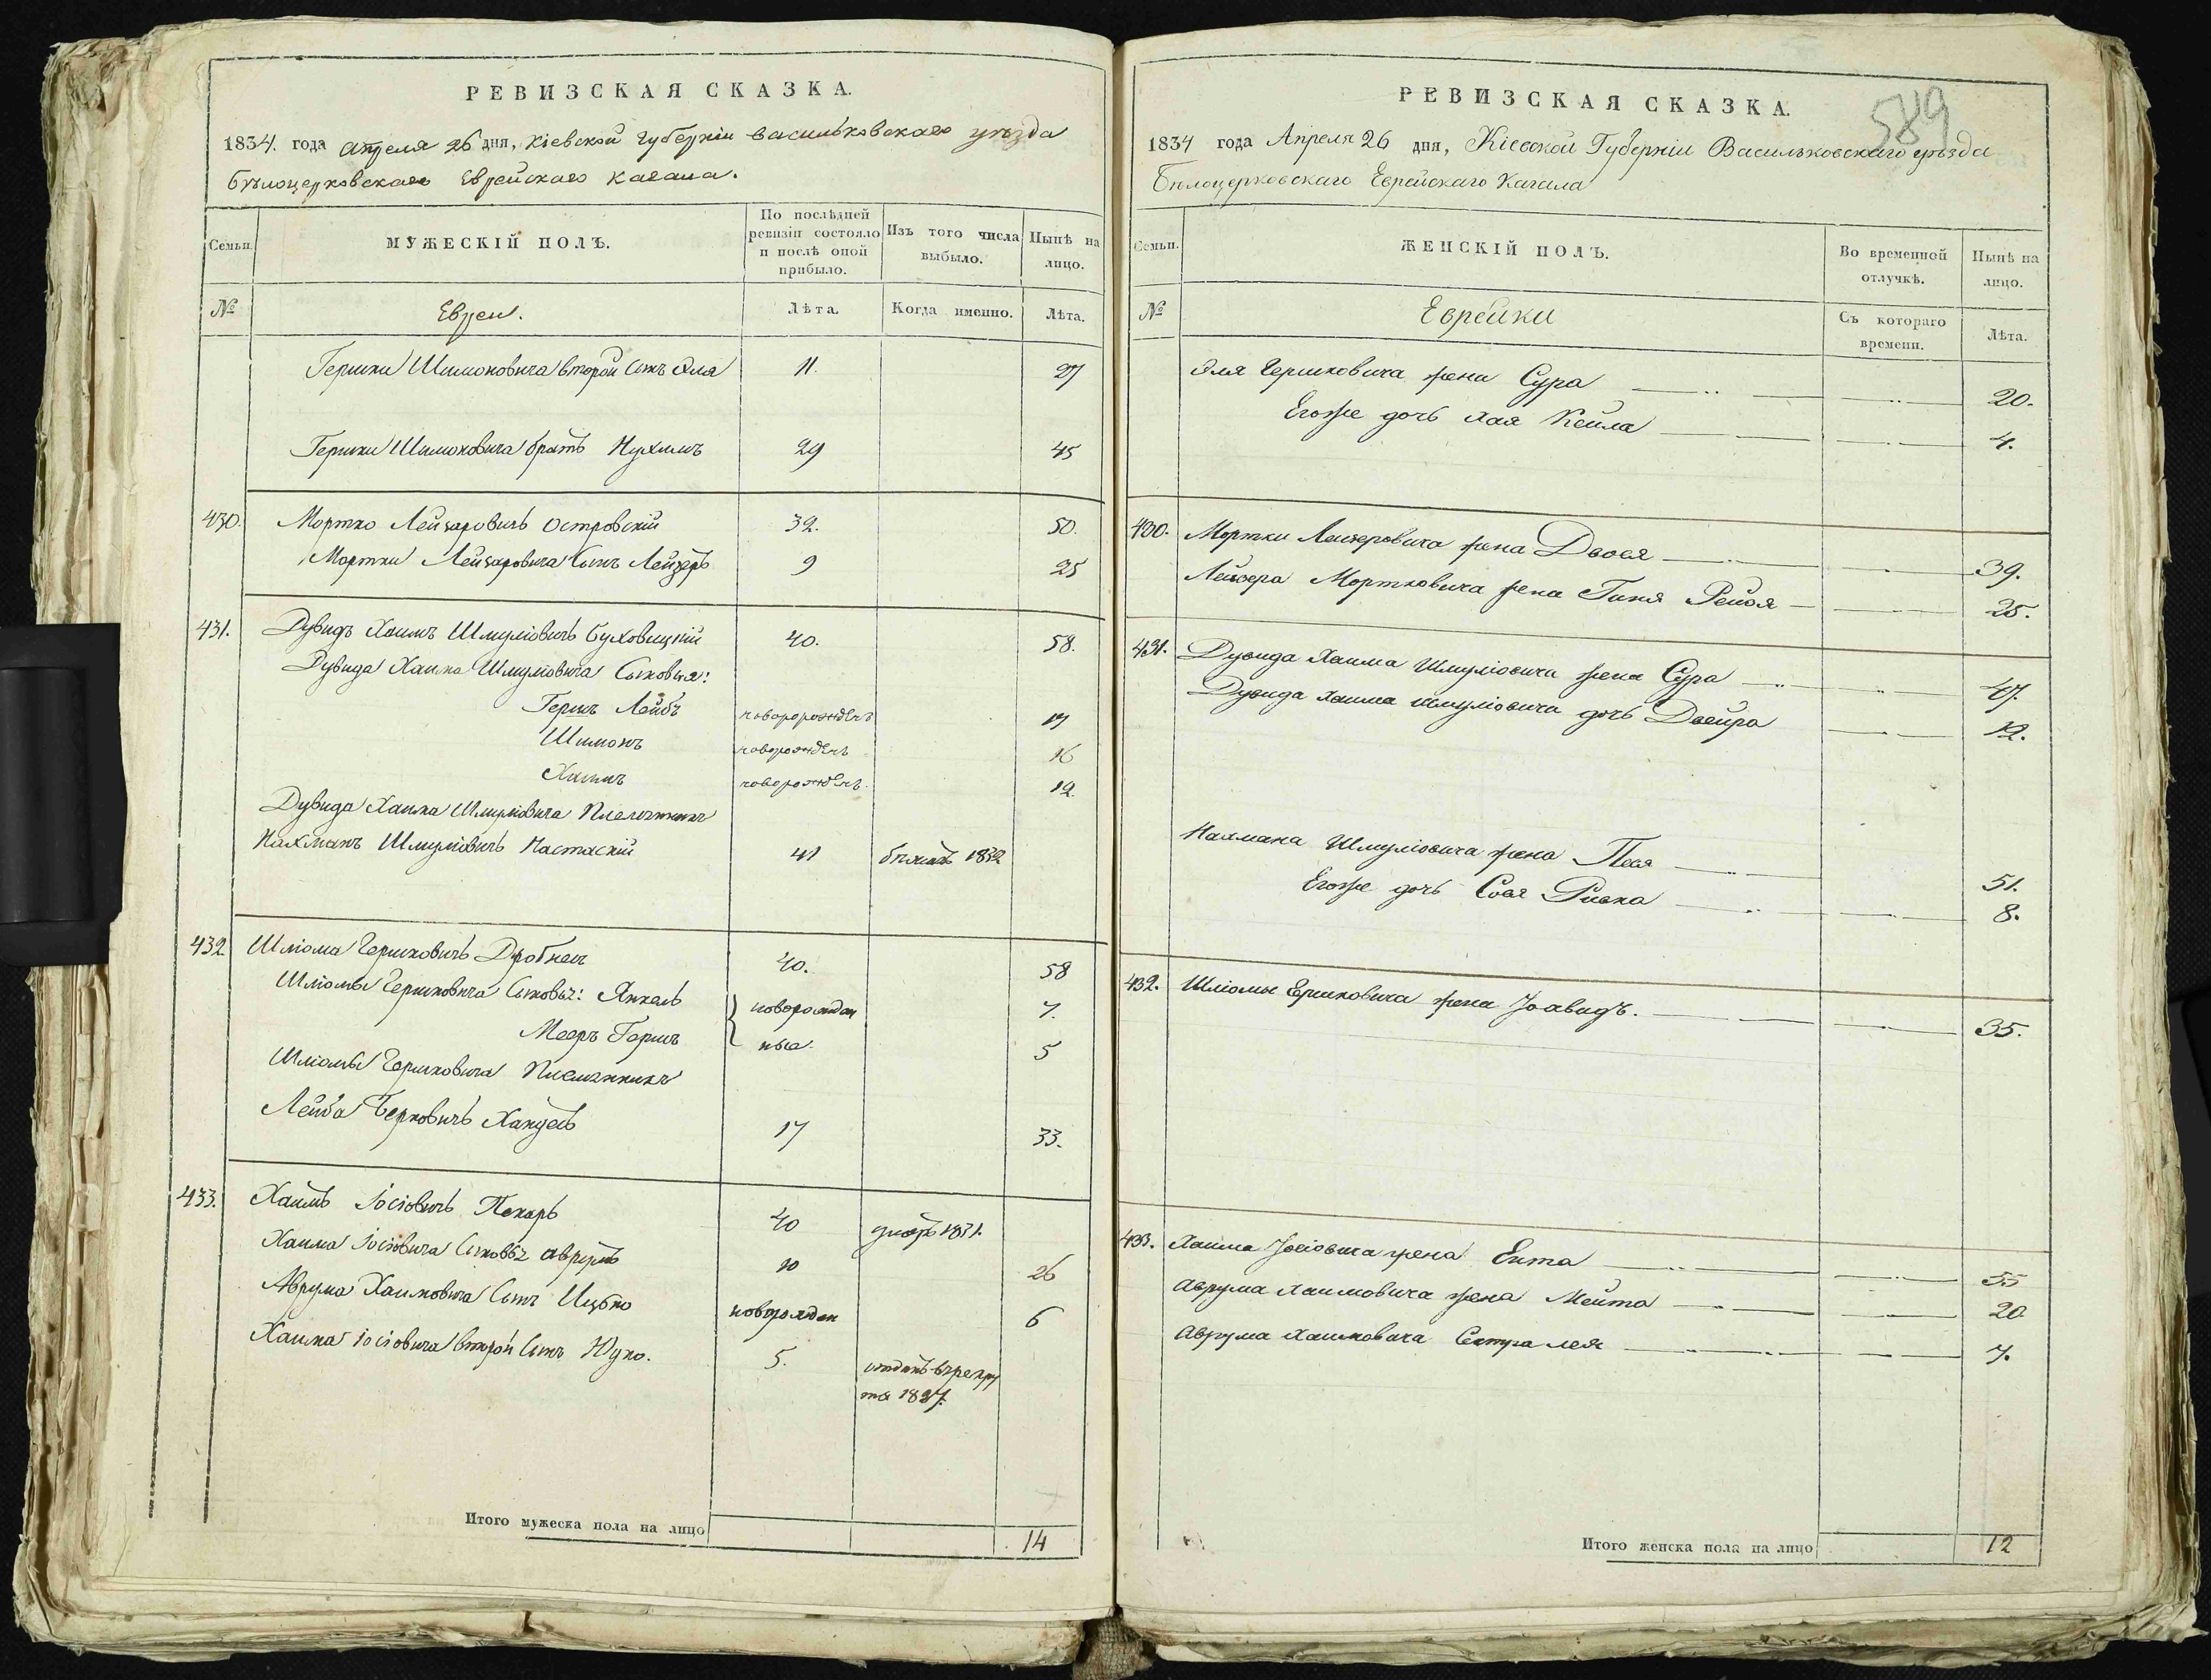 РЕВИЗСКАЯ СКАЗКА.
1834. года апреля 26 дня, Кіевской Губерніи васильковскаго уѣзда
Бѣлоцерковскаго Еврейскаго Кагала.
Семьи.
МУЖЕСКІЙ ПОЛЪ.
По послѣдней ревизіи состояло и послѣ оной прибыло.
Изъ того числа выбыло.
Нынѣ на лицо.
№
Евреи.
Лѣта.
Когда именно.
Лѣта.
Гершки Шимоновича второй сынъ Эля 11. 27
Гершки Шимоновича братъ Нухимъ 29 45
430. Мортко Лейзаровичъ Островскій 32. 50.
Мортки Лейзаровича сынъ Лейзеръ 9 25
431. Дувидъ Хаимъ Шмуліовичъ Буховицкій 40. 58.
Дувида Хаима Шмуліовича Сыновья:
Гершъ Лейбъ новоророжденъ 17
Шимонъ новорожденъ 16
Хаимъ новорожденъ. 12.
Дувида Хаима Шмуліовича Племянникъ
Нахманъ Шмуліовичъ Настаскій 41 бѣжалъ 1832
432 Шліома Гершковичъ Дробнеч 40. 58
Шліомы Гершковича Сыновья: Янкель новорожден 7.
Мееръ Гершъ ные. 5
Шліомы Гершковича Племянникъ
Лейба Берковичъ 17 33.
433. Хаимъ Іосіовичъ Пекарь 40 умеръ 1831.
Хаима Іосіовича Сыновья Аврумъ 10 26
Аврума Хаимовича Сынъ Ицько новорожден 6
Хаима Іосіовича второй Сынъ Юдко. 5. отданъ в рекру
та 1827.
Итого мужеска пола на лицо 14
РЕВИЗСКАЯ СКАЗКА.
589
1834 года Апреля 26 дня, Кіевской Губерніи Васильковскаго уѣзда
Бѣлоцерковскаго Еврейскаго Кагала
Семьи.
ЖЕНСКІЙ ПОЛЪ.
Во временной отлучкѣ.
Нынѣ на лицо.
№
Еврейки
Съ котораго времени.
Лѣта.
Эля Гершковича жена Сура 20.
Егоже дочь Хая Кейла 4.
430. Мортки Лейзеровича жена Двося 39.
Лейзера Мортковича жена Гиня Рейзя 25.
431. Дувида Хаима Шмуліовича жена Сура 47.
Дувида Хаима Шмуліовича дочь Двейра 12.
Нахмана Шмуліовича жена Песя 51.
Егоже дочь Сося Ривка 8.
432. Шліомы Ершковича жена 35.
433. Хаима Іосіовича жена Ента 55
Аврума Хаимовича жена Мейта 20.
Аврума Хаимовича Сестра Лея 7.
Итого женска пола на лицо 12